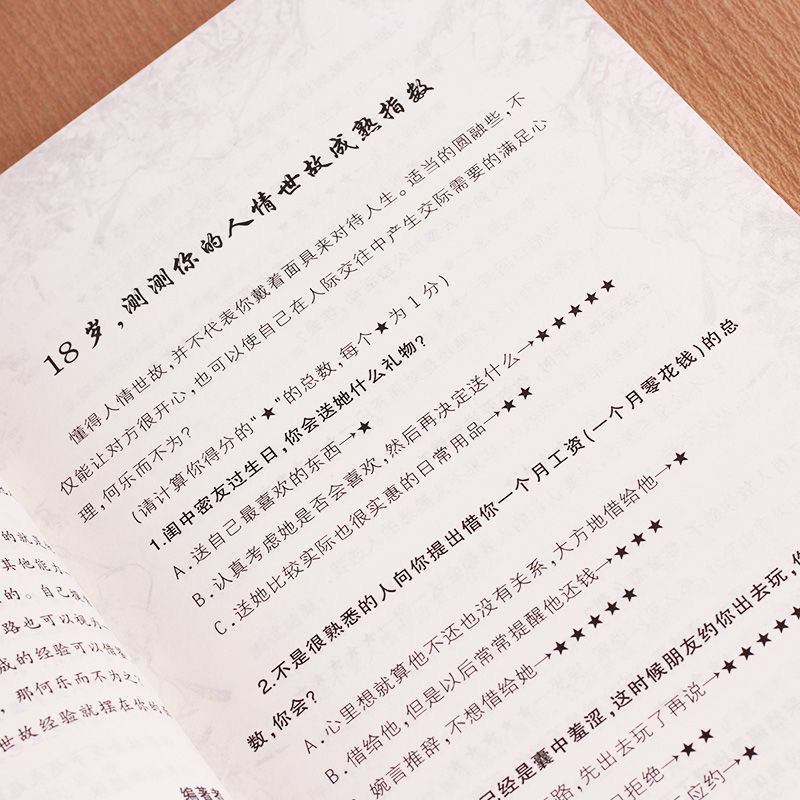 的就是
其他能
的。自己
路也可以
成的经验可以借
,那何乐而不为
世故经验就摆在你的
编著者
18 岁,测测你的人情世故成熟指数
懂得人情世故,并不代表你戴着面具来对待人生。适当的圆融些,不
仅能让对方很开心,也可以使自己在人际交往中产生交际需要的满足心
理,何乐而不为?
(请计算你得分的“★”的总数,每个★为1分)
1.闺中密友过生日,你会送她什么礼物?
A.送自己最喜欢的东西→★
B.认真考虑她是否会喜欢,然后再决定送什么→★★★★★
C.送她比较实际也很实惠的日常用品→★★
2.不是很熟悉的人向你提出借你一个月工资(一个月零花钱)的总
数,你会?
A.心里想就算他不还也没有关系,大方地借给他→★
B.借给他,但是以后常常提醒他还钱→★★★
婉言推辞,不想借给她→★★★★★
已经是囊中羞涩,这时候朋友约你出去玩,你
路,先出去玩了再说→★★★★★
拒绝→★★
应约→★